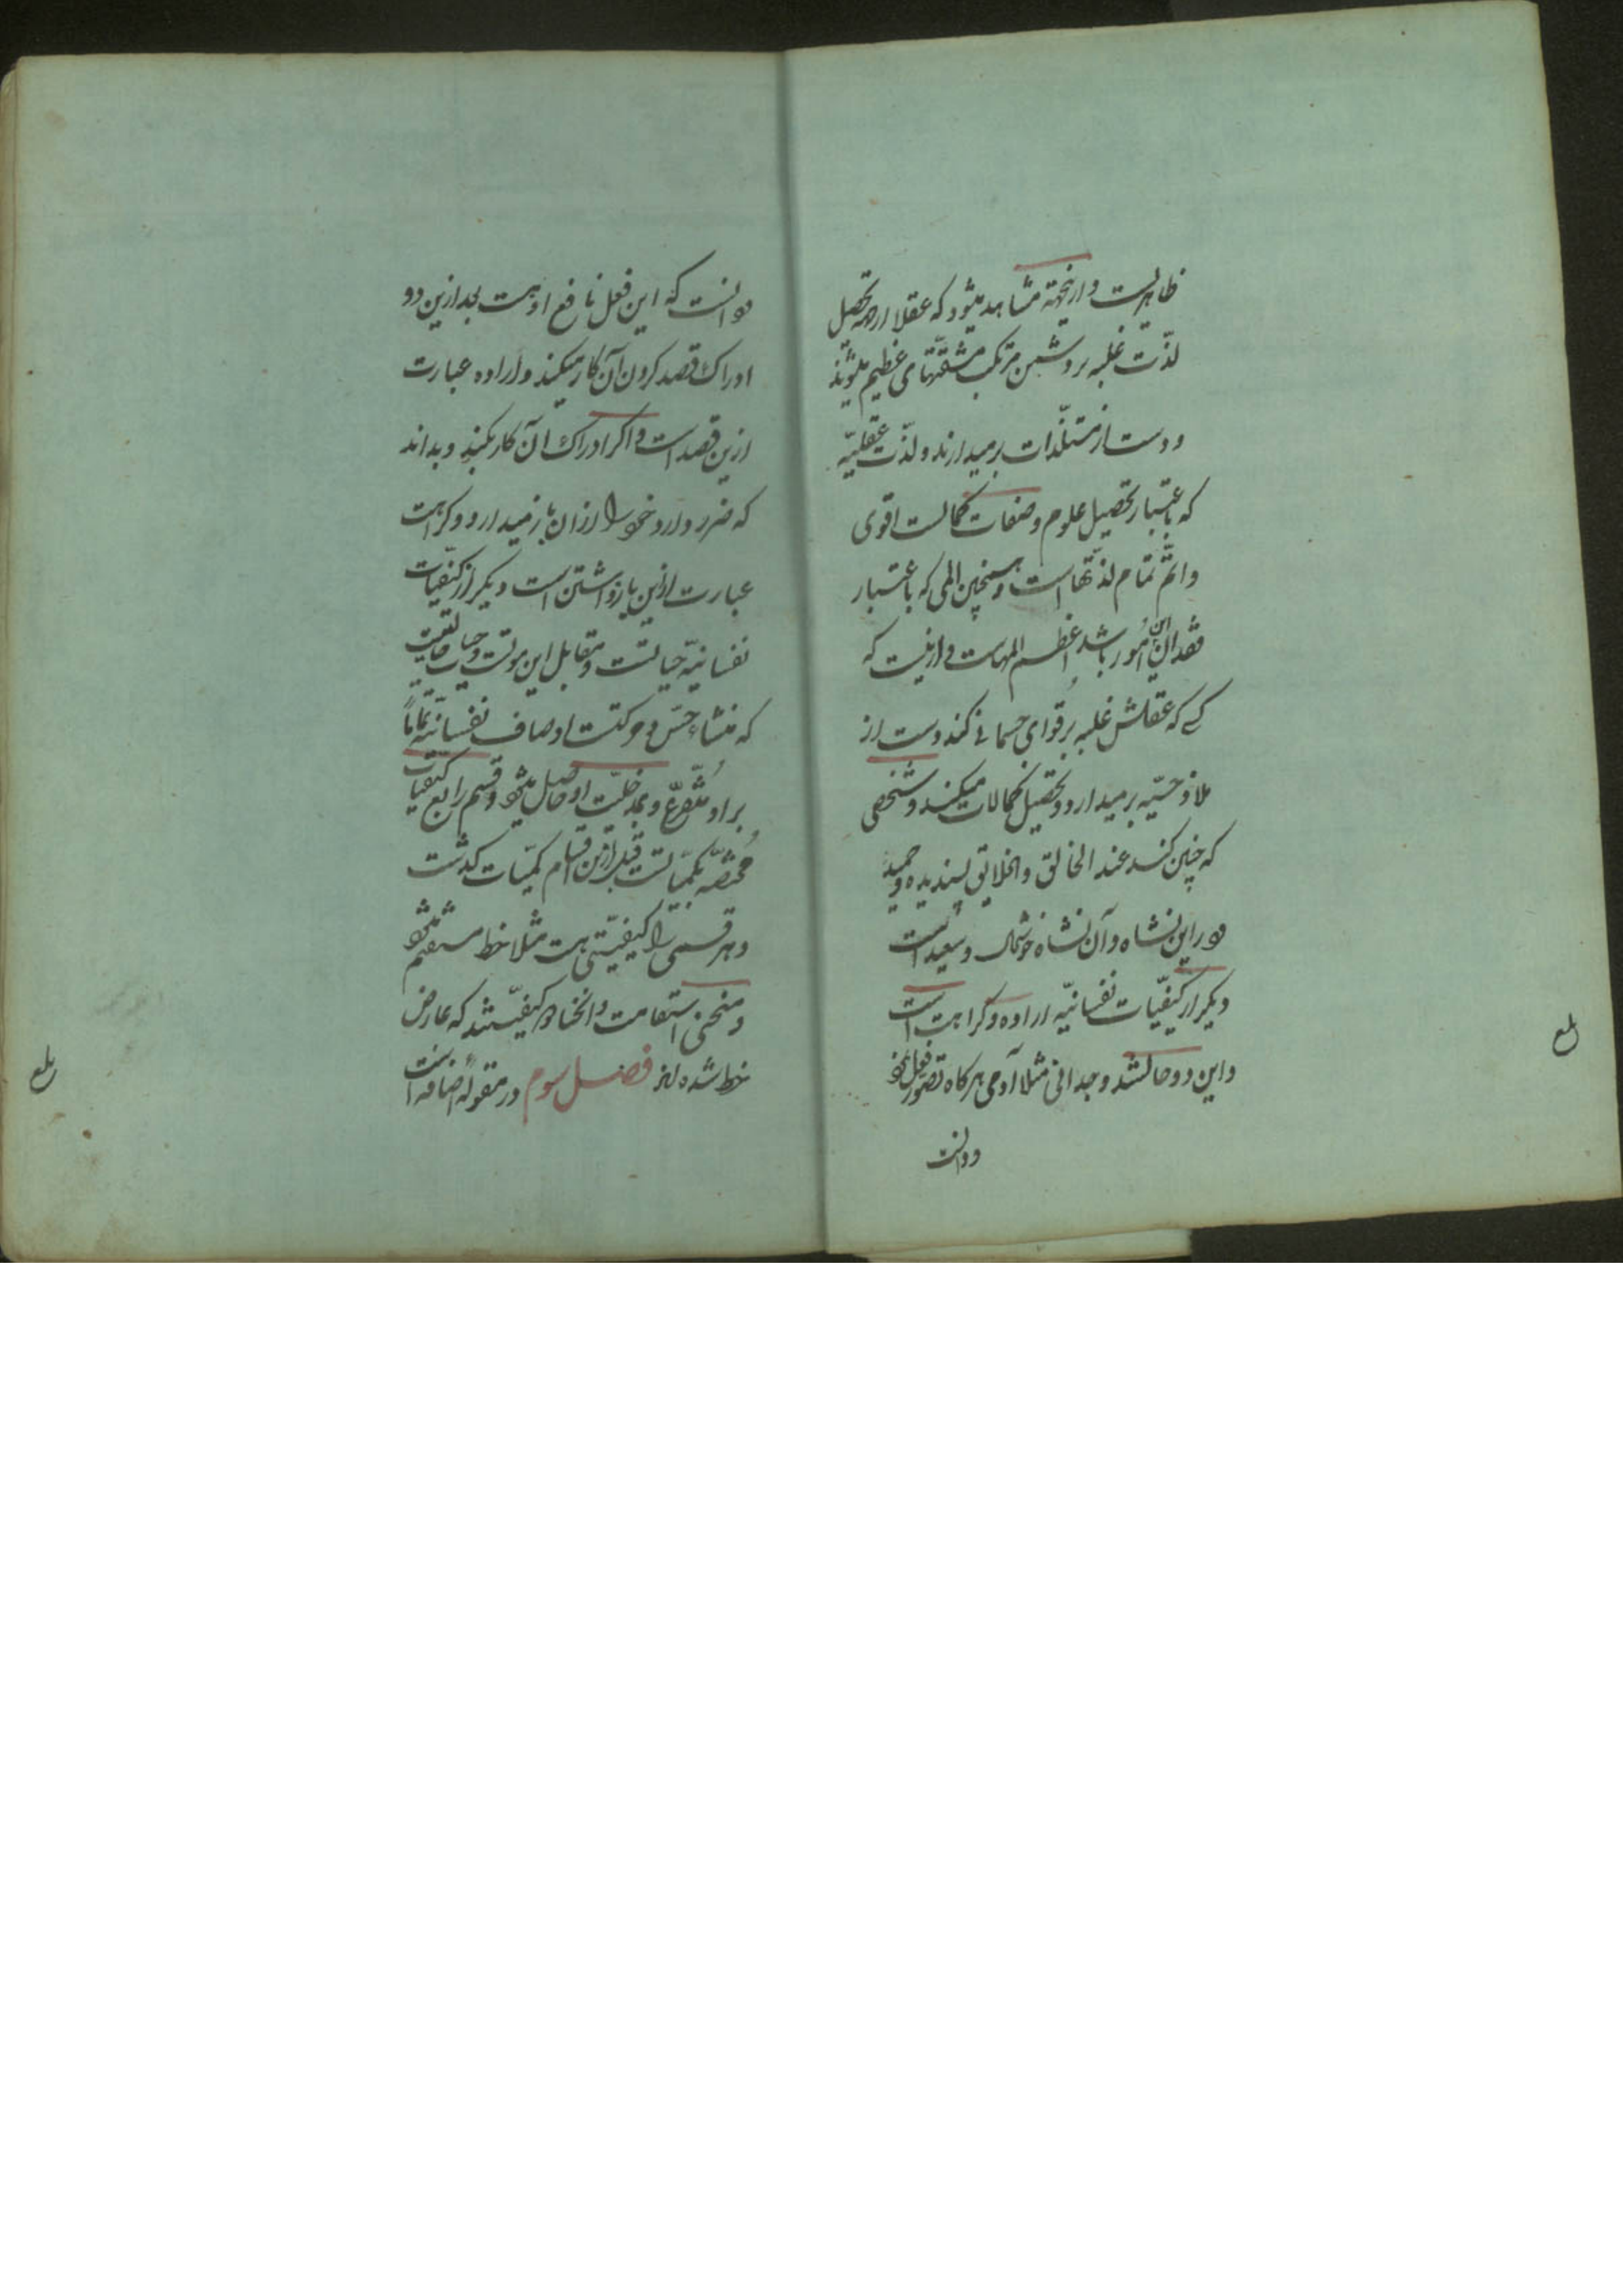 ظاهرست و ازینجهة مشاهد میشود که عقلا از جهة تحصیل
لذّت غلبه بر دشمن مرتکب مشقّتهای عظیم میشوند
و دست از مستلذّات برمیدارند و لذّت عقلیّه
که باعتبار تحصیل علوم و صفات کمالست اقوی
و اتمّ تمام لذّتهاست و همچنین المی که باعتبار
فقدان این امور باشد اعظم المهاست و ازینست که
کسی که عقلش غلبه بر قوای جسمانی کند دست از
ملاذ حسّیّه برمیدارد و تحصیل کمالات میکند و شخصی
که چنین کند عند الخالق و الخلایق پسندیده و حمید
و در این نشاه و آن نشاه خوشحال و سعید است
دیکر از کیفیّات نفسانیّه اراده و کراهت است
و این دو حالتند وجدانی مثلا آدمی هرکاه تصور فعل نمود
و دانست
و دانست که این فعل نافع اوست بعد ازین دو
ادراک قصد کردن آن کار میکند و اراده عبارت
ازین قصد است و اکر ادراک آن کار بکند و بداند
که ضرر دارد خود را از آن باز میدارد و کراهت
عبارت ازین باز داشتن است دیکر از کیفیّات
نفسانیّه حیاتست و مقابل این موتست و حیات صفتیست
که منشاء حسّ و حرکتست و اوصاف نفسانیّه تماماً
بر او متفرّع و بمدخلیّت او حاصل میشود و قسم رابع کیفیّات
مُختصّه بکمیّاتست قبل ازین اقسام کمیّات کذشت
و هر قسمی را کیفیّتی هست مثلا خط مستقیم میشود
و منحنی استقامت و انحنا دو کیفیّتند که عارض
خط شده اند فصل سوم در مقوله اضافه است